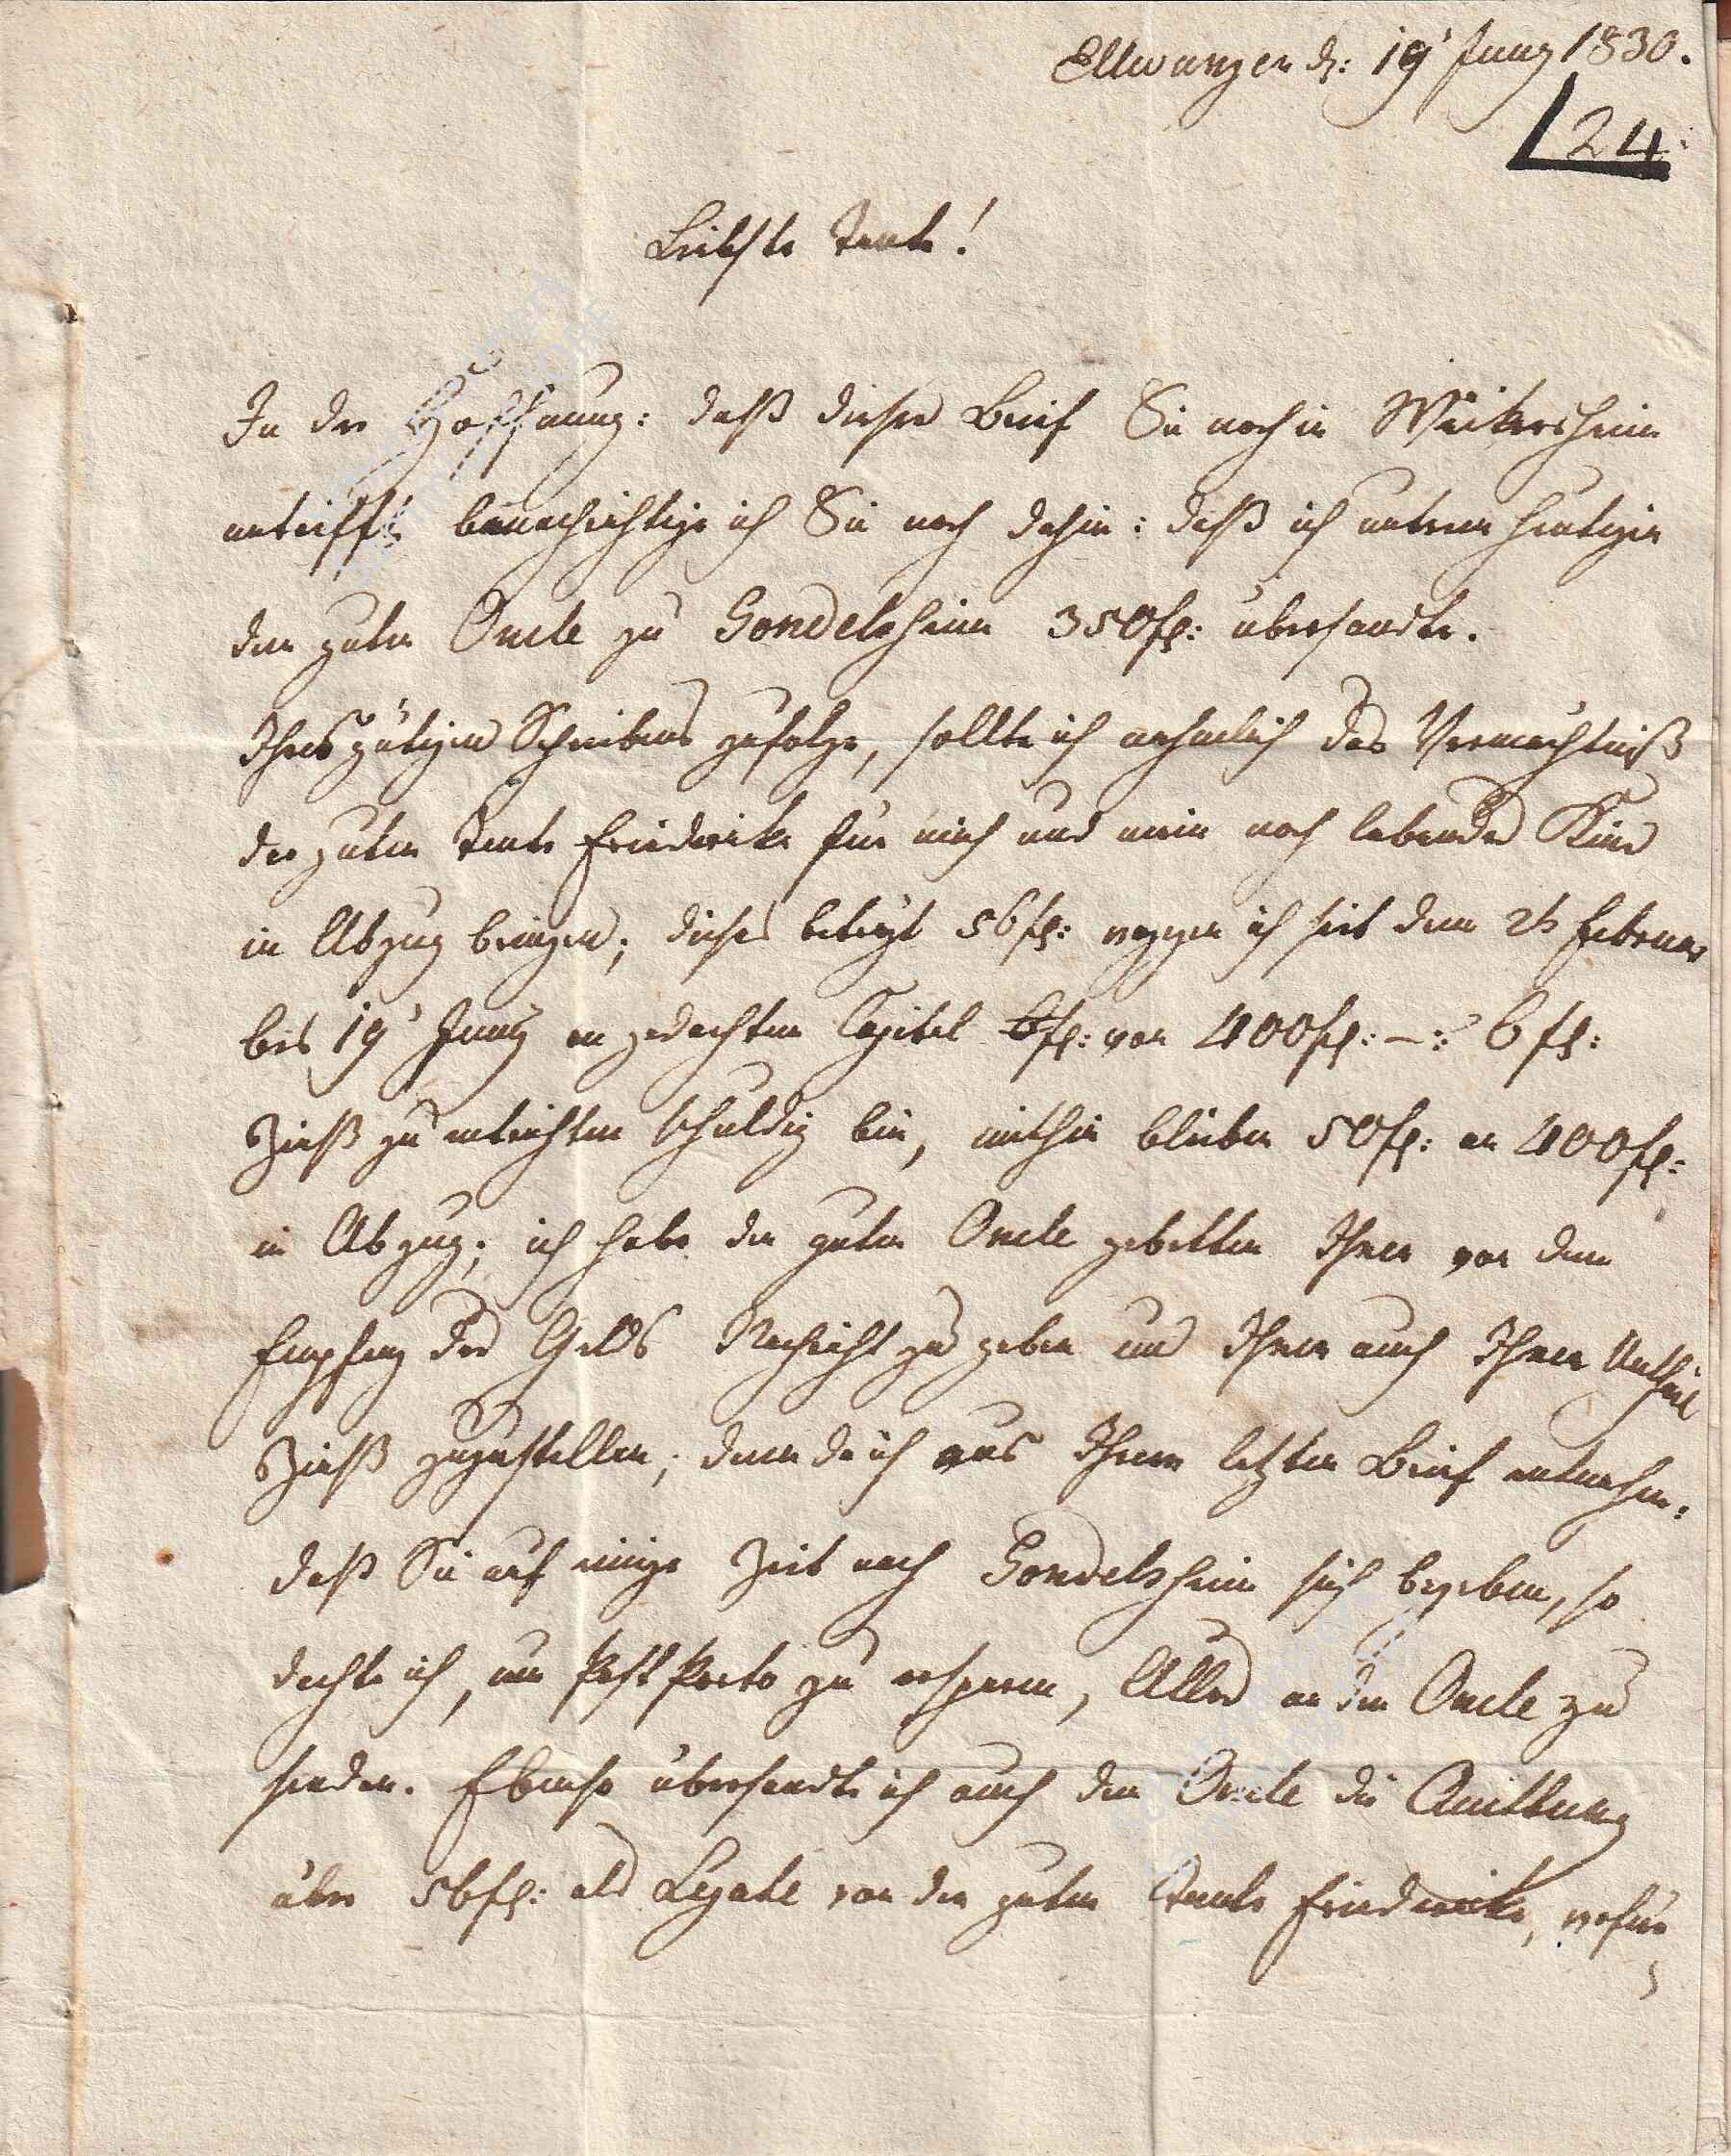 Ellwangen d: 19' Juny 1830.
24.
Liebste Tante!
In der Hoffnung: daß dieser Brief Sie noch in Weikersheim
antrifft benachrichtige ich Sie noch dahin: daß ich unterm heutigen
dem guten Oncle zu Gondelsheim 350 fl: übersandte.
Ihres gütigen Schreibens zufolge, sollte ich nehmlich das Vermächtniß
der guten Tante Friederike für mich und mein noch lebendes Kind
in Abzug bringen; dieses beträgt 56 fl: wogegen ich seit dem Februar
bis 19' Juny an gedachtem Capitel von 400 fl: 6 fl:
Zinß zu entrichten schuldig bin, mithin bleiben 50 fl: an 400 fl:
in Abzug; ich habe den guten Oncle gebetten Ihnen von dem
Empfang des Gelds Nachricht zu geben und Ihnen auch Ihren Antheil
Zinß zuzustellen; denn da ich aus Ihrem letzten Brief entnehm:
daß Sie auf einige Zeit nach Gondelsheim sich begeben, so
dachte ich, um Post Porto zu ersparen, Alles an den Oncle zu
senden. Ebenso übersandte ich auch dem Oncle die Quittung
über 56 fl: als Legate von der guten Tante Friederike, wofür